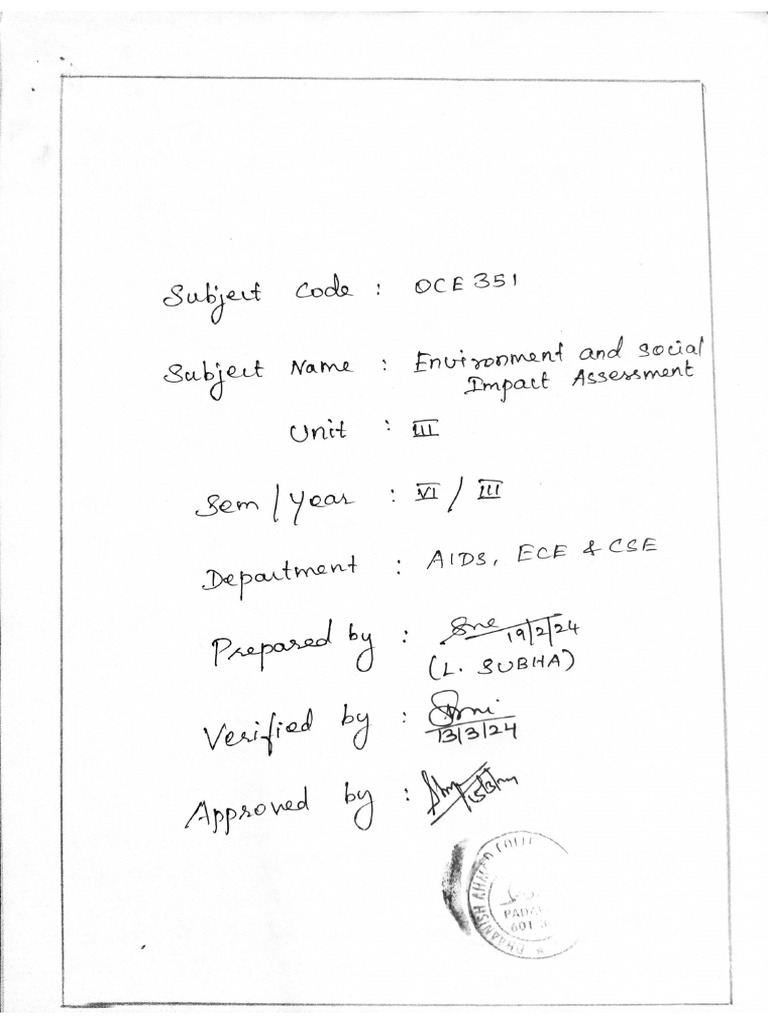 Subject Code : OCE 351
Subject Name : Environment and Social
Impact Assessment
Unit : III
Sem / Year : VI / III
Department : AIDS, ECE & CSE
Prepared by : 19/2/24
(L. SUBHA)
Verified by :
13/3/24
Approved by :
DHAANISH AHMED COLLE
PADA
601